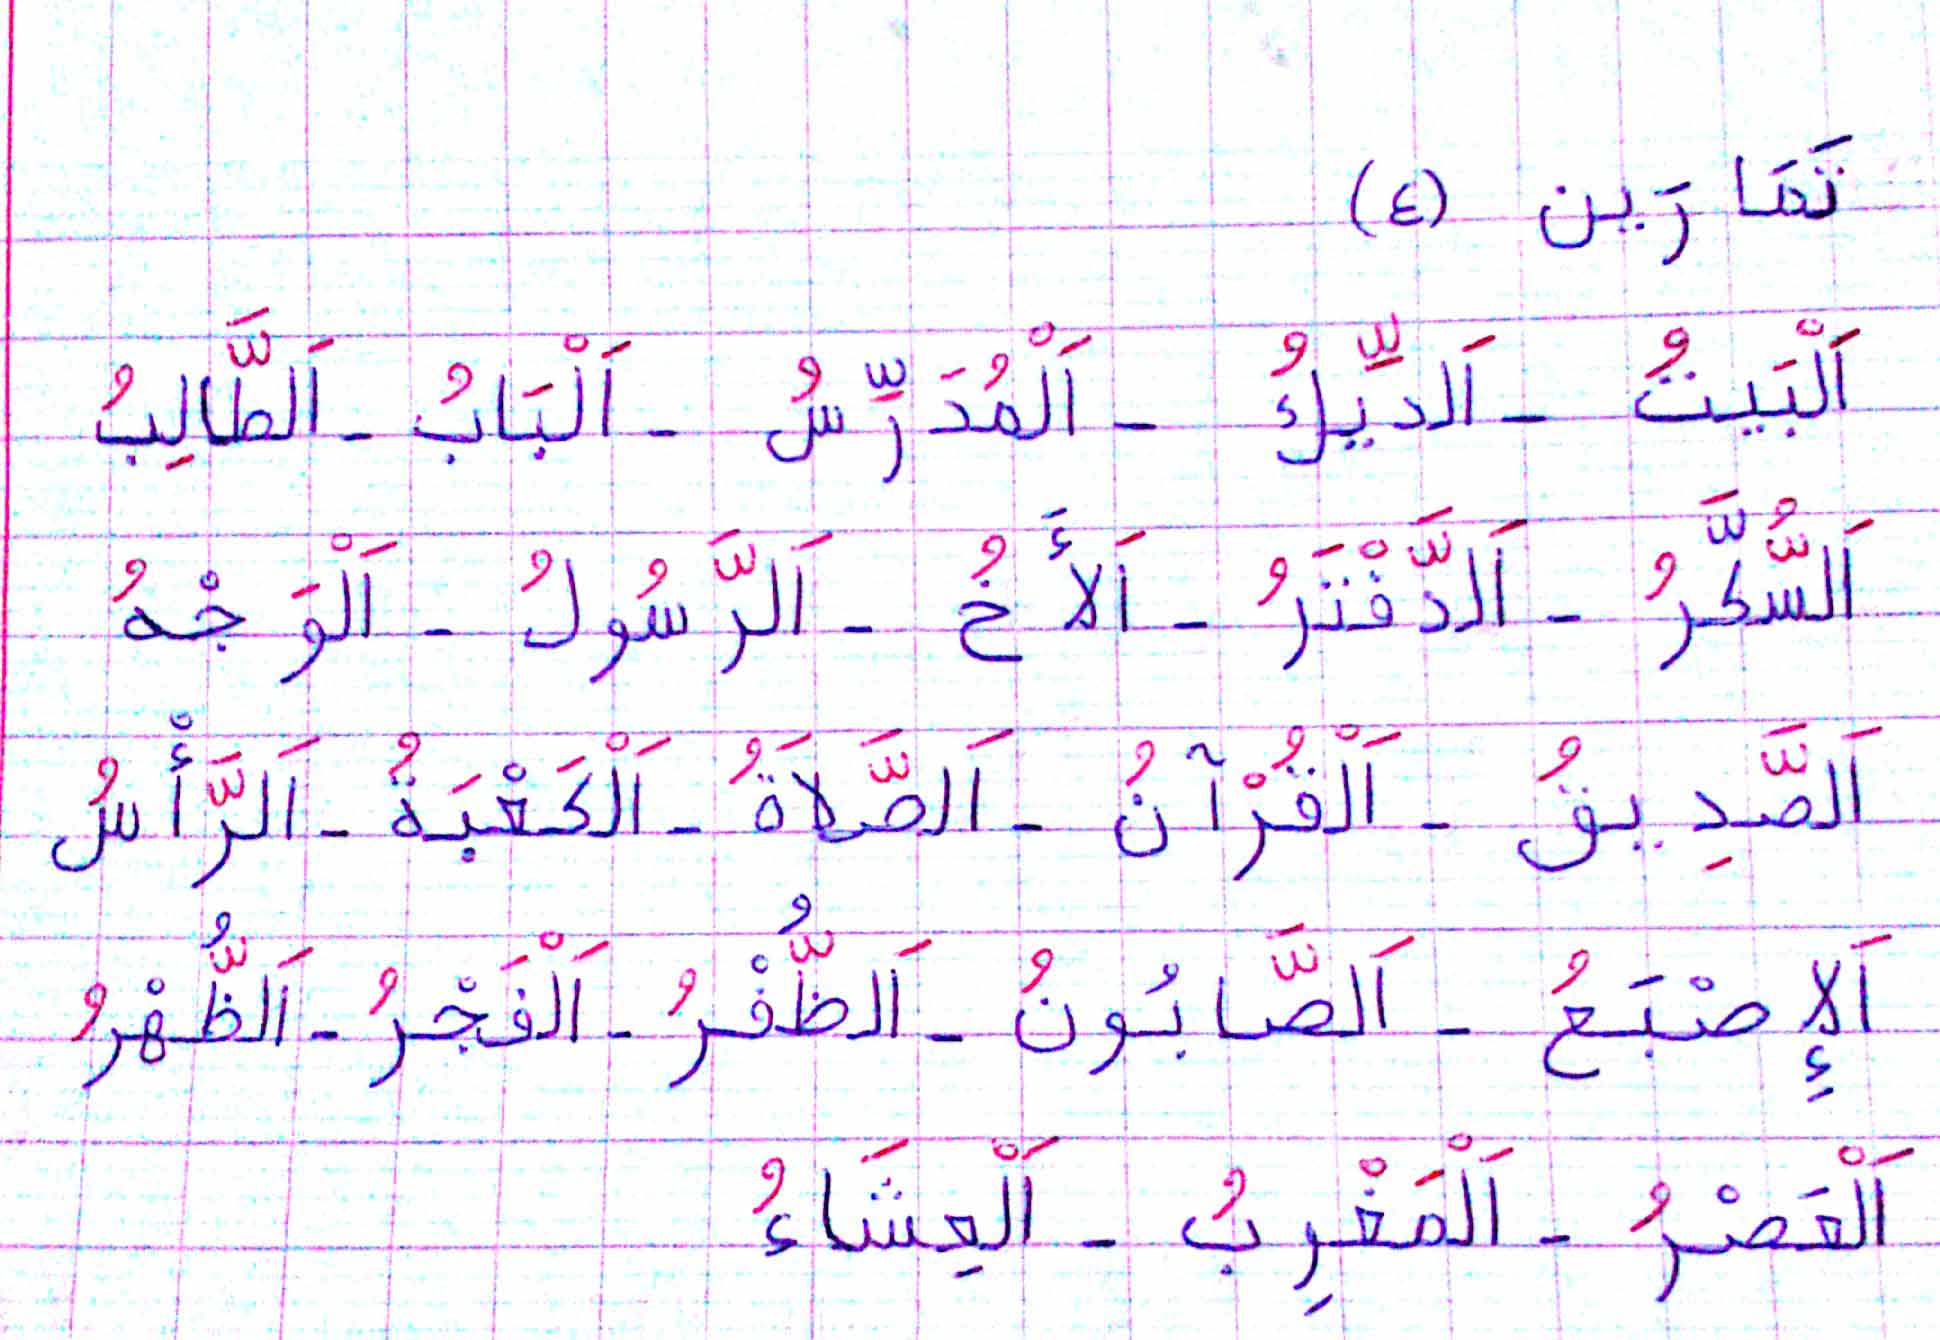 تَمَارَين (٤)
اَلْبَيتُ - اَلدَّيِّكُ - اَلْمُدَرِّسُ - اَلْبَابُ - اَلطَّالِبُ
اَلسُّكَّرُ - اَلدَّفْتَرُ - اَلأَخُ - اَلرَّسُولُ - اَلْوَجْهُ
اَلصَّدِيقُ - اَلْقُرْآنُ - اَلصَّلَاةُ - اَلْكَعْبَةُ - اَلرَّأْسُ
اَلإِصْبَعُ - اَلصَّابُونُ - اَلظُّفْرُ - اَلْفَجْرُ - اَلظُّهْرُ
اَلْعَصْرُ - اَلْمَغْرِبُ - اَلْعِشَاءُ